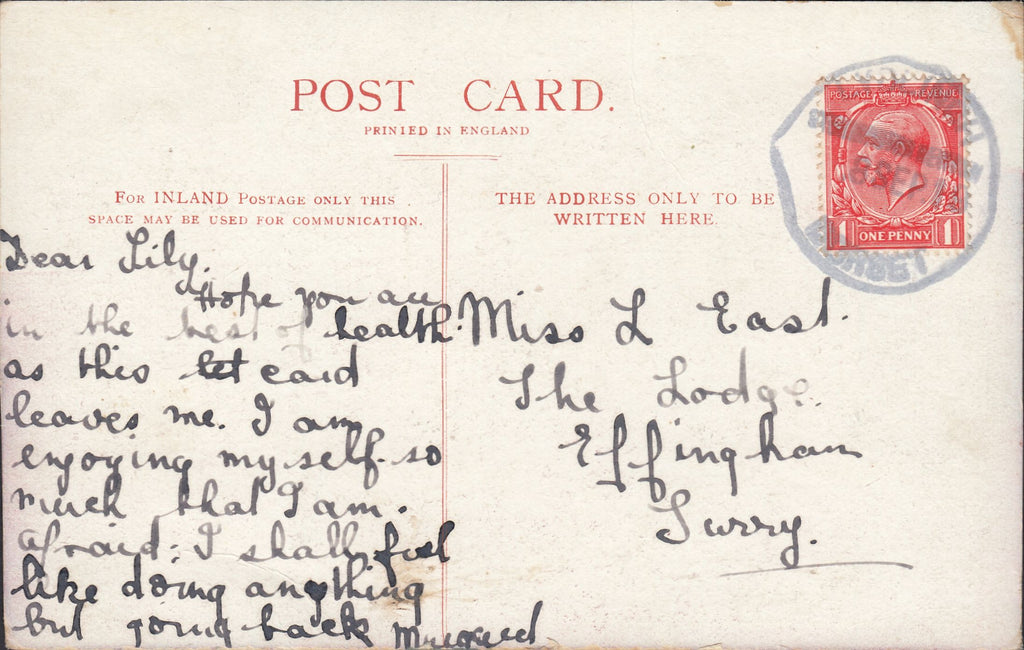 POST CARD.
PRINTED IN ENGLAND
FOR INLAND POSTAGE ONLY THIS
SPACE MAY BE USED FOR COMMUNICATION.
THE ADDRESS ONLY TO BE
WRITTEN HERE.
POSTAGE REVENUE
1 ONE PENNY 1
DORSET
Dear Lily.
Hope you are
in the best of health
as this let card
leaves me. I am
enjoying myself so
much that I am.
afraid I shall feel
like doing anything
but going back
Miss L East.
The Lodge.
Effingham
Surry.